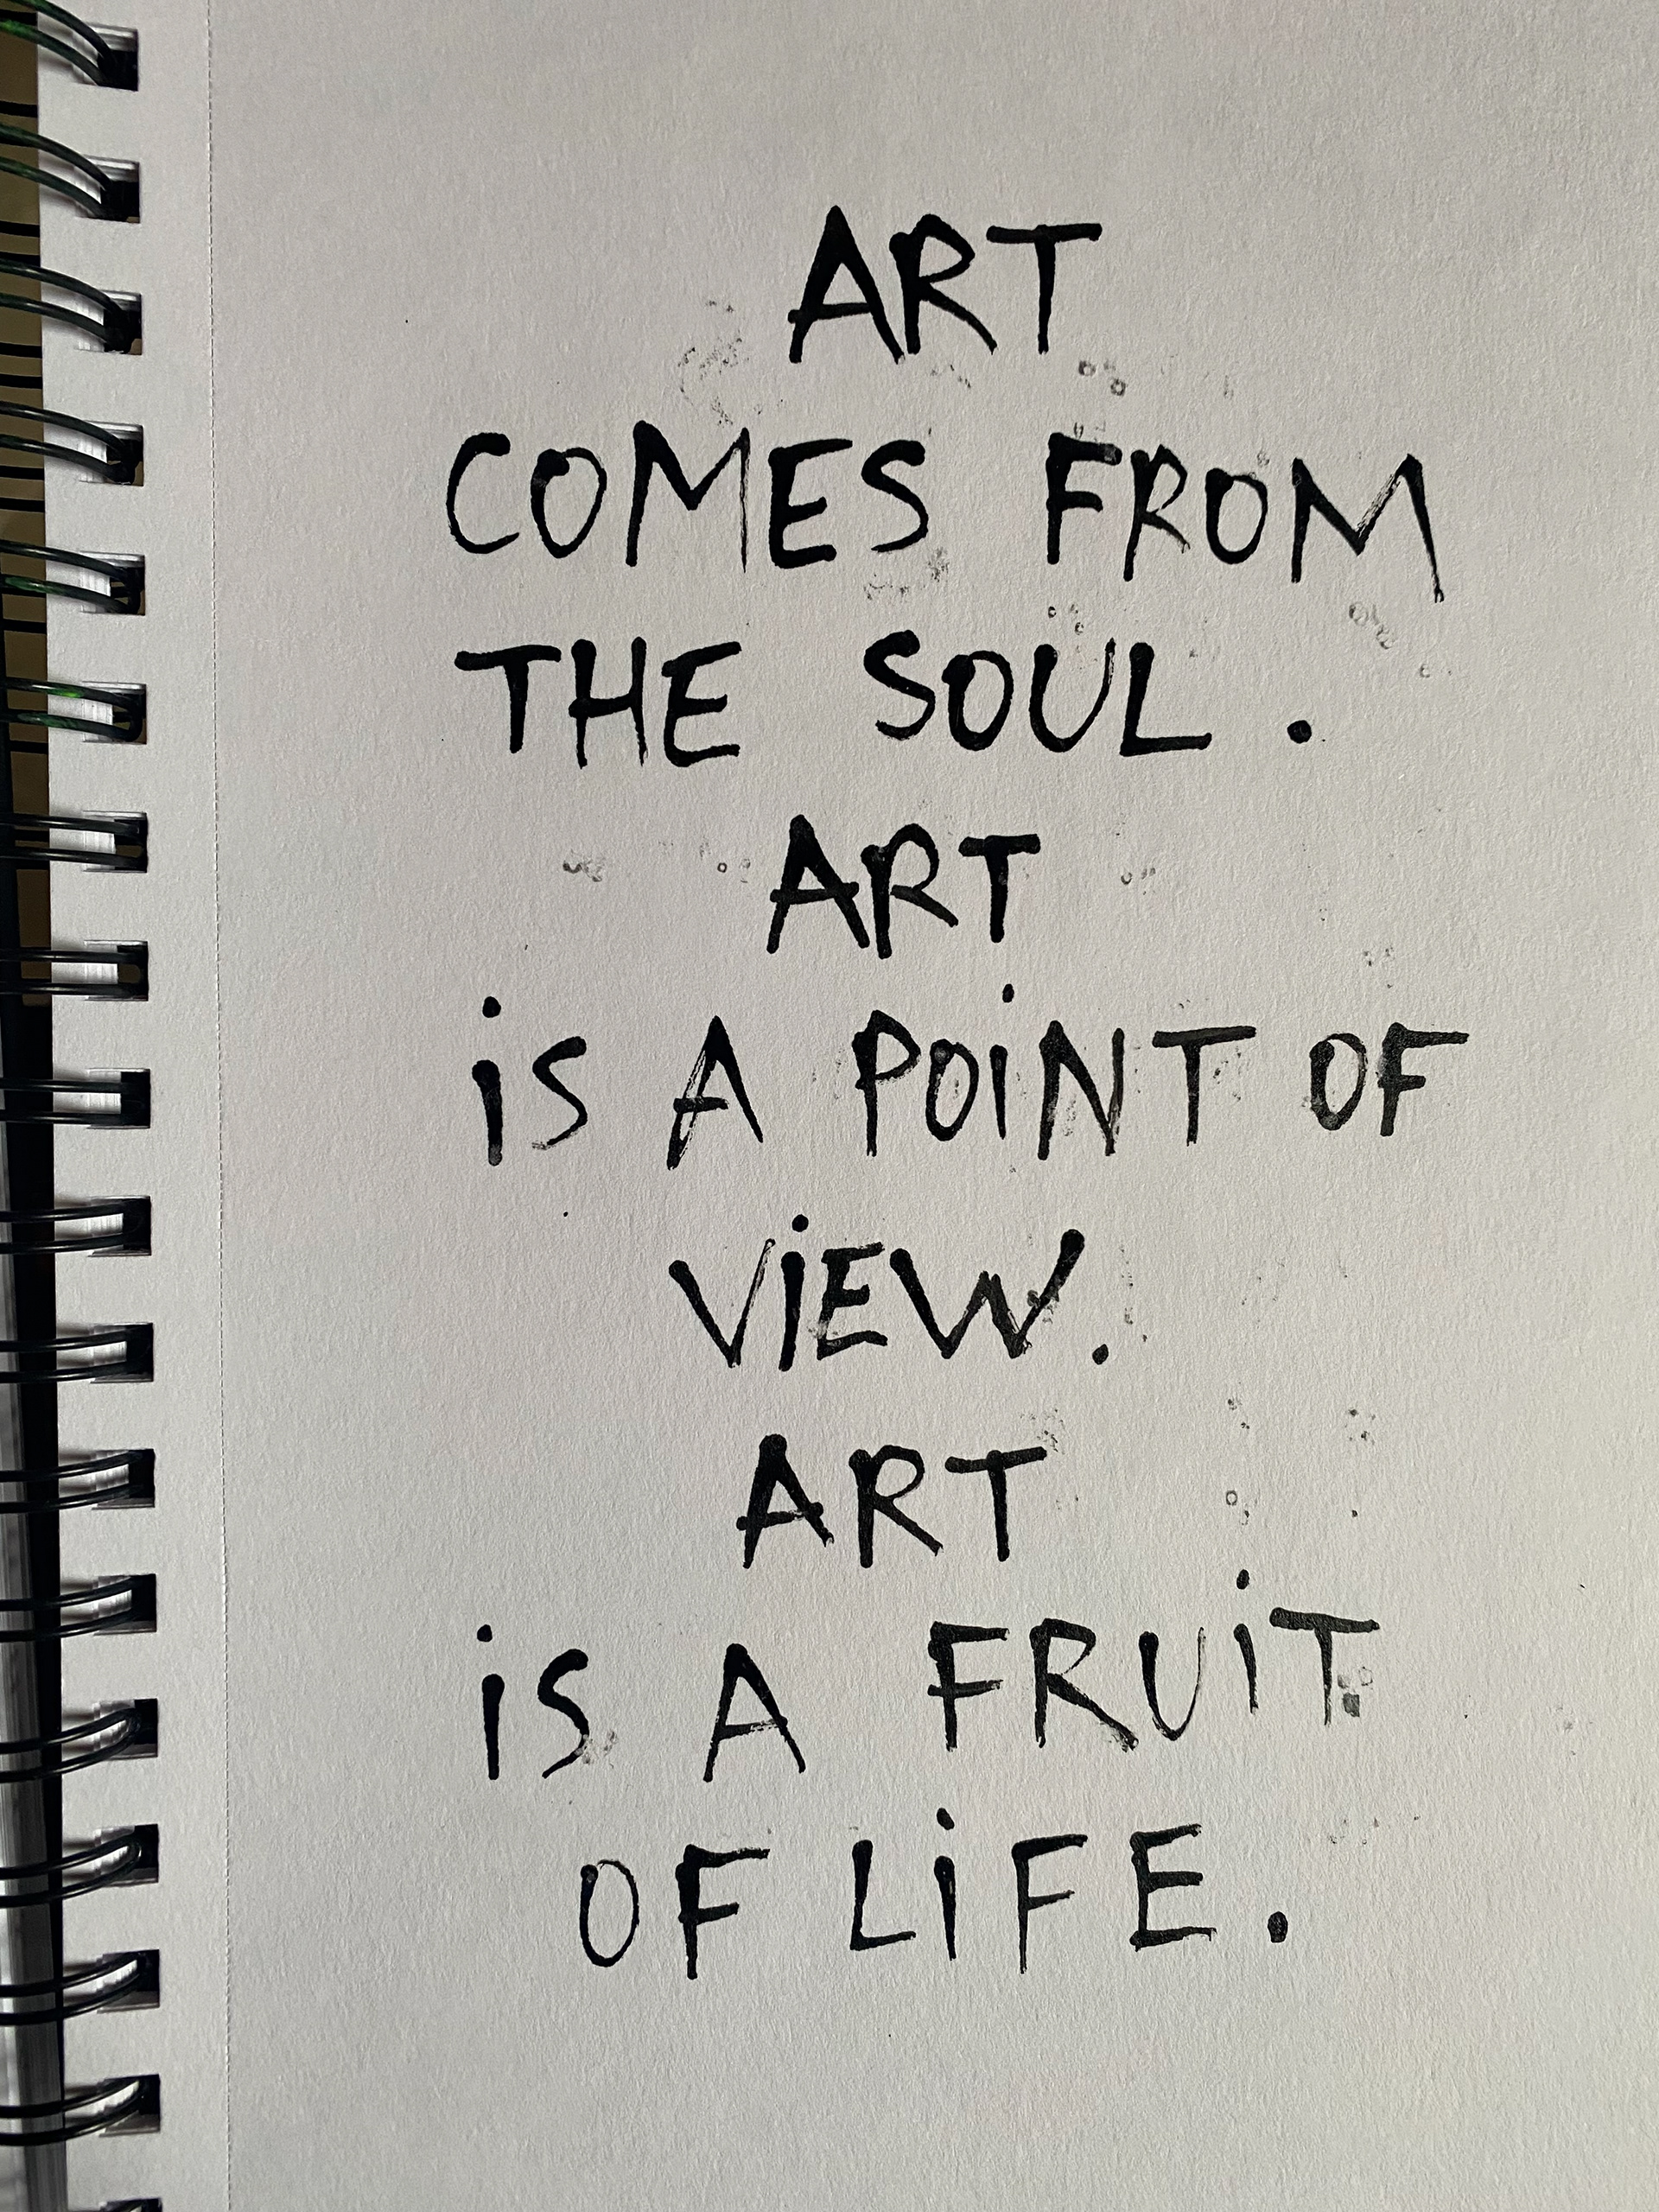 ART
COMES FROM
THE SOUL.
ART
iS A POiNT OF
ViEW.
ART
iS A FRUiT
OF LiFE.